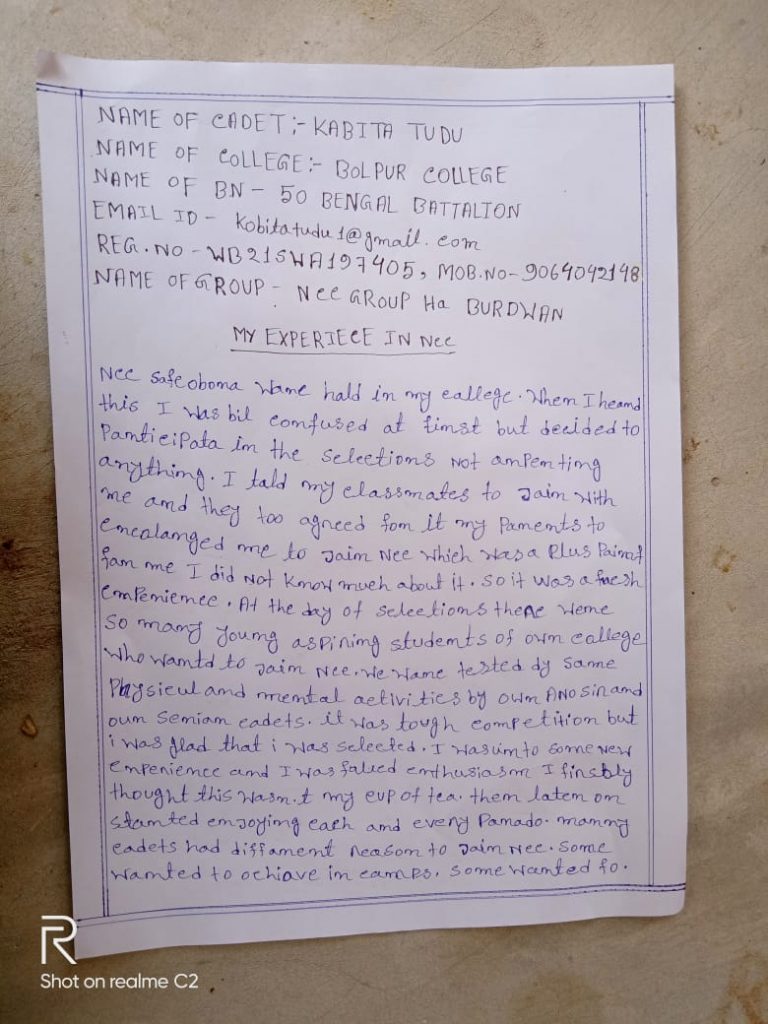 NAME OF CADET:- KABITA TUDU
NAME OF COLLEGE:- BOLPUR COLLEGE
NAME OF BN - 50 BENGAL BATTALION
EMAIL ID - kobitatudu1@gmail.com
REG.NO - WB21SWA197405, MOB.NO- 9064042148
NAME OF GROUP - NCC GROUP Hq BURDWAN
MY EXPERIECE IN NCC
NCC Safeobona wane hald in my callege. When I heand
this I was bit confused at finst but decided to
Panticipata in the selections Not anpenting
anything. I tald my classmates to Jain with
me and they too agreed fon it my Panents to
encalanged me to Jain Ncc which was a Plus Paint
fan me I did not know much about it. so it was a fnesh
Enpenience. At the day of selections thene wene
so many young aspining students of own callege
who wantd to Jain Ncc. We wane tested dy same
Physicul and mental activities by own ANO sin and
oun Senian cadets. it was tough competition but
i was glad that i was selected. I was into some new
enpenience and I was falied enthusiasm I finstly
thought this wasn.t my cup of tea. then laten on
stanted enjoying each and eveny Panado. manny
cadets had diffanent neason to Jain Ncc. Some
wanted to ochiave in camps. some wanted to.
Shot on realme C2